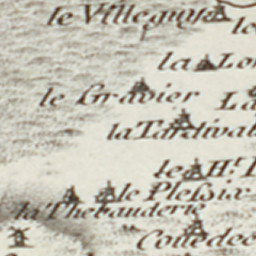 le Villeguysa
le
la Lo
le Gravier La
la Tardival
le H.t
le Plessix
la Thebauderie
Couedec